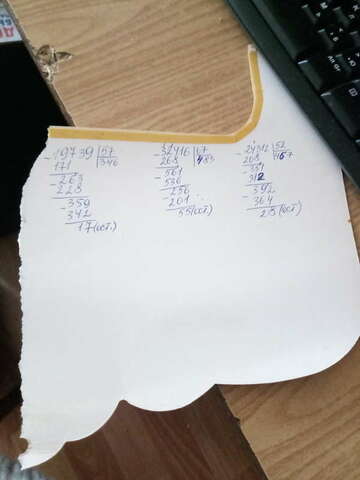 19739 | 57
171 346
- 263
228
- 359
342
17(ост.)
32416 | 67
268 483
- 561
536
- 256
201
55(ост.)
24312 | 52
208 467
- 351
312
- 392
364
28(ост.)